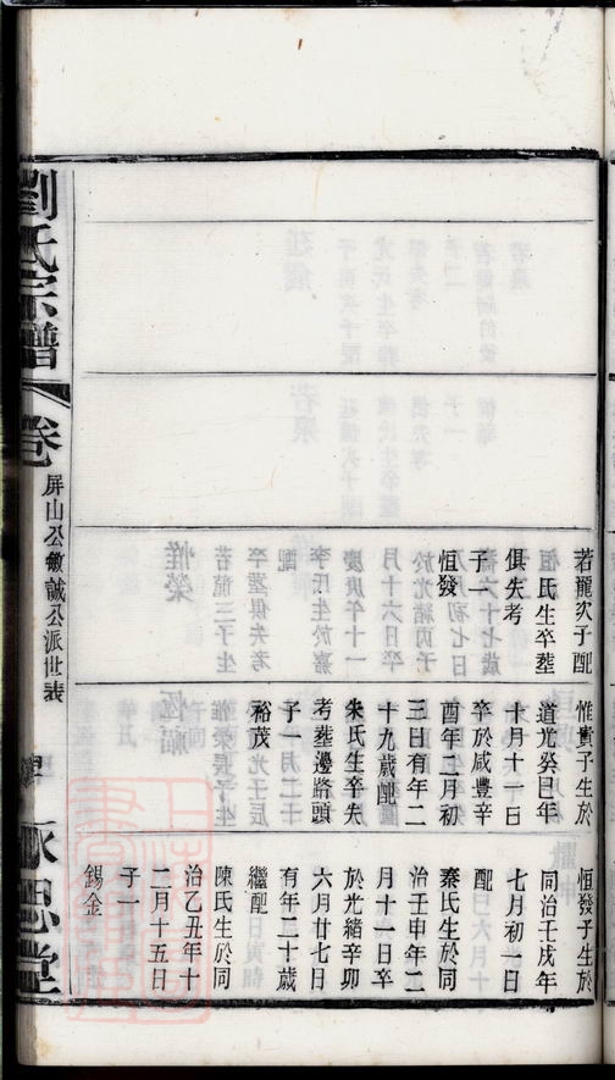 若龍次子配
氏生卒塟
俱失考
子一
恒發
惟貴子生於
道光癸巳年
十月十一日
卒於咸豐辛
酉年二月初
三日有年二
十九歲配
朱氏生卒失
考塟邊路頭
子一
裕茂
恒發子生於
同治壬戌年
七月初一日
配
秦氏生於同
治壬申年二
月十一日卒
於光緒辛卯
六月廿七日
有年二十歲
繼配
陳氏生於同
治乙丑年十
二月十五日
子一
錫金
劉氏宗譜
卷
屏山公敏誠公派世表
永思堂